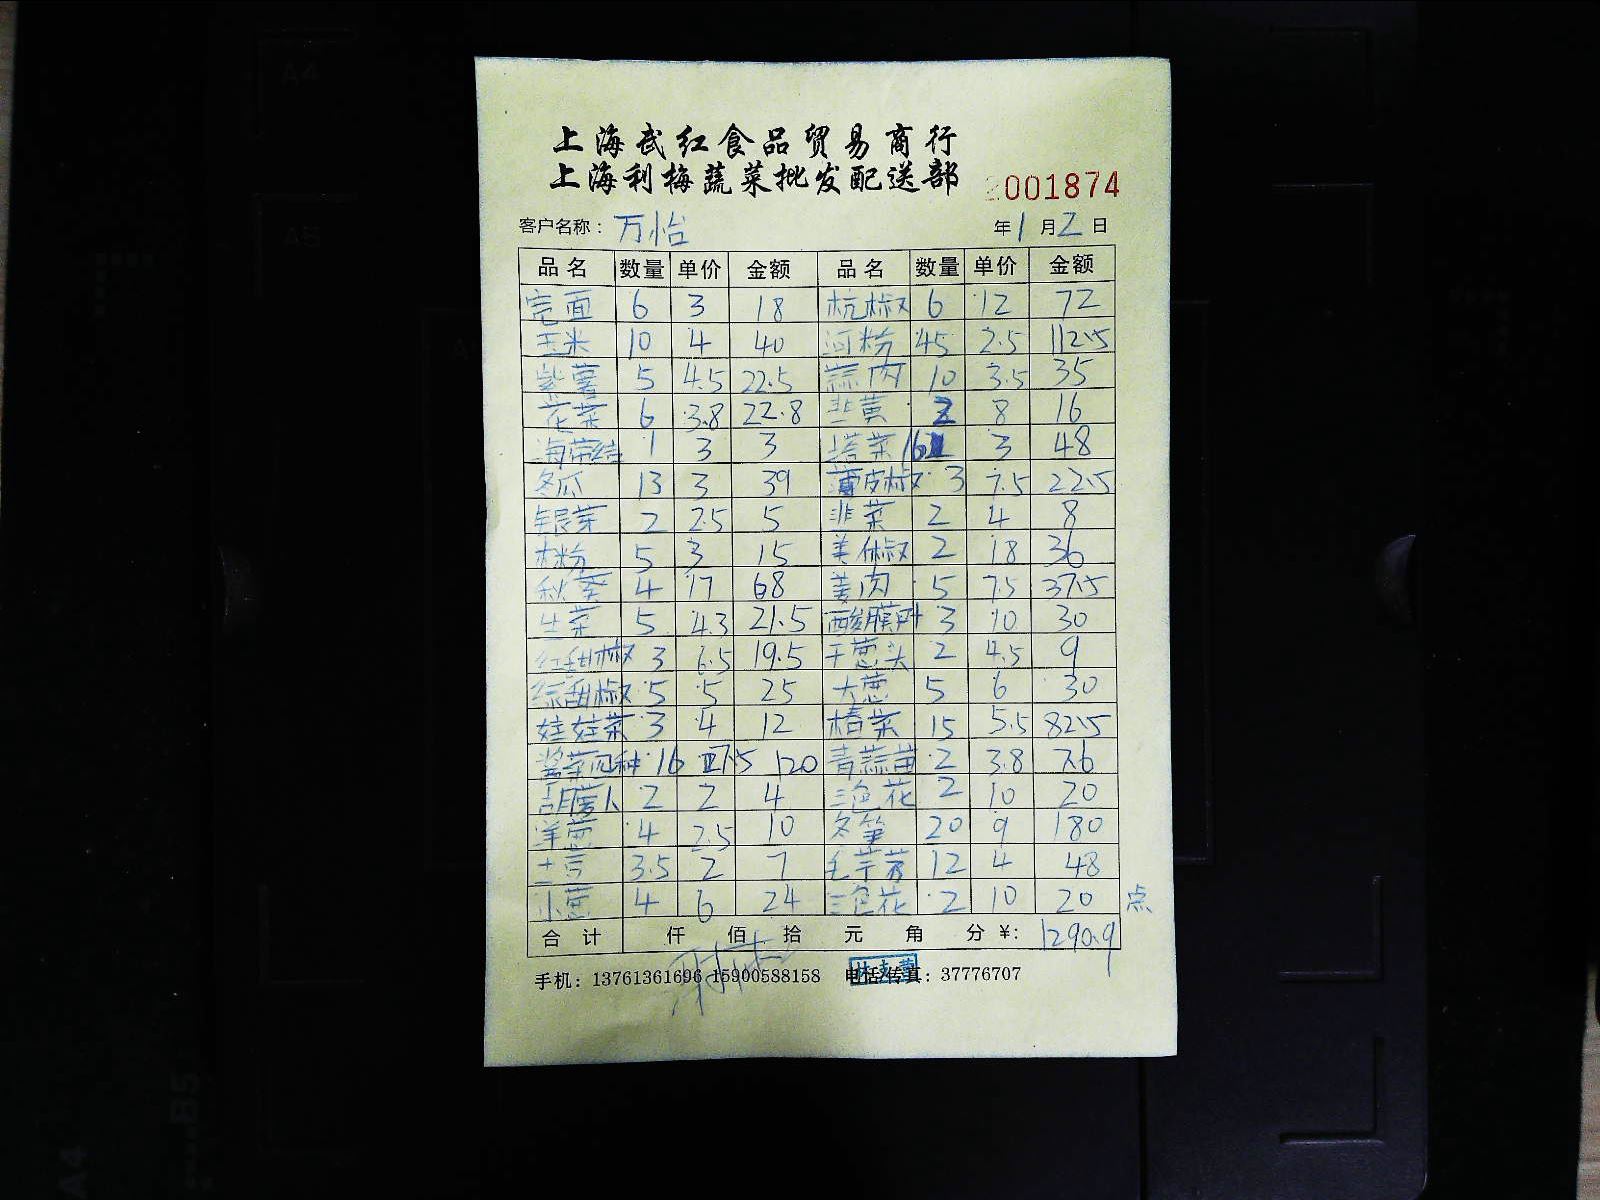 上海武红食品贸易商行
上海利梅蔬菜批发配送部
2001874
客户名称：万怡 年1月2日
品名 数量 单价 金额 品名 数量 单价 金额
宽面 6 3 18 杭椒 6 12 72
玉米 10 4 40 河粉 45 2.5 112.5
紫薯 5 4.5 22.5 蒜肉 10 3.5 35
花菜 6 3.8 22.8 韭黄 2 8 16
海带结 1 3 3 塔菜 16 3 48
冬瓜 13 3 39 薄皮椒 3 7.5 22.5
银芽 2 2.5 5 韭菜 2 4 8
5 3 15 美休椒 2 18 36
秋葵 4 17 68 姜肉 5 7.5 37.5
生菜 5 4.3 21.5 3 10 30
红甜椒 3 6.5 19.5 干葱头 2 4.5 9
绿甜椒 5 5 25 大葱 5 6 30
娃娃菜 3 4 12 椿菜 15 5.5 82.5
酱菜四种 16 7.5 120 青蒜苗 2 3.8 7.6
胡萝卜 2 2 4 三色花 2 10 20
洋葱 4 2.5 10 冬笋 20 9 180
土豆 3.5 2 7 毛芋艿 12 4 48
小葱 4 6 24 三色花 2 10 20 点
合计 仟 佰 拾 元 角 分 ¥: 1290.9
手机：13761361696 15900588158 电话/传真：37776707